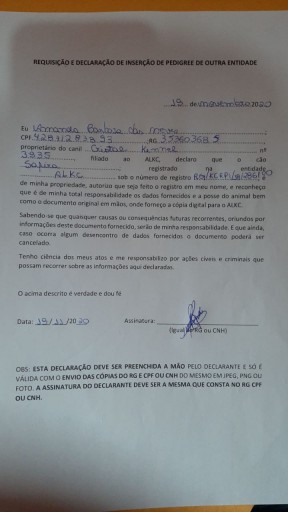 REQUISIÇÃO E DECLARAÇÃO DE INSERÇÃO DE PEDIGREE DE OUTRA ENTIDADE
19 de novembro 2020
Eu Amanda Barbosa das
CPF RG
proprietário do canil Kennel nº
3835 filiado ao ALKC, declaro que o cão
Safira registrado na entidade
ALKC sob o número de registro
de minha propriedade, autorizo que seja feito o registro em meu nome, e reconheço
que é de minha total responsabilidade os dados fornecidos e a posse do animal bem
como o documento original em mãos, onde forneço a cópia digital para o ALKC.
Sabendo-se que quaisquer causas ou consequências futuras recorrentes, oriundos por
informações deste documento fornecido, serão de minha responsabilidade. E que ainda,
caso ocorra algum desencontro de dados fornecidos o documento poderá ser
cancelado.
Tenho ciência dos meus atos e me responsabilizo por ações cíveis e criminais que
possam recorrer sobre as informações aqui declaradas.
O acima descrito é verdade e dou fé
Data: 19/11/2020 Assinatura:
(Igual ao RG ou CNH)
OBS: ESTA DECLARAÇÃO DEVE SER PREENCHIDA A MÃO PELO DECLARANTE E SÓ É
VÁLIDA COM O ENVIO DAS CÓPIAS DO RG E CPF OU CNH DO MESMO EM JPEG, PNG OU
FOTO. A ASSINATURA DO DECLARANTE DEVE SER A MESMA QUE CONSTA NO RG CPF
OU CNH.